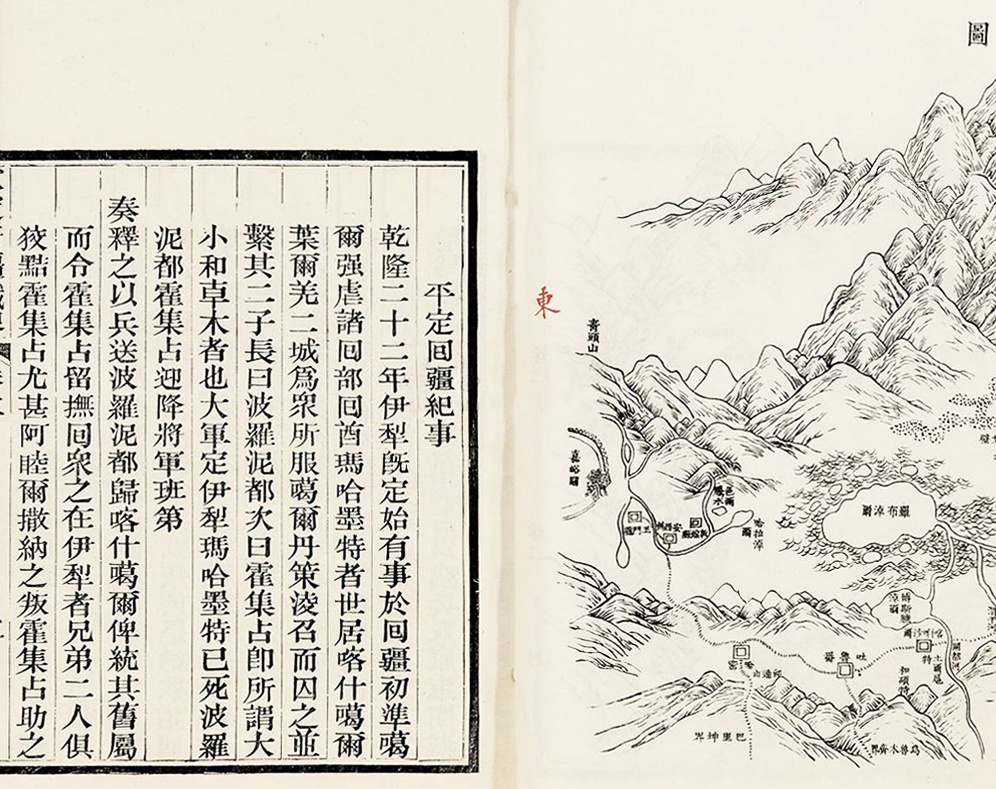 圖
東
羅布淖爾
哈拉淖爾
嘉峪關
玉門縣
敦煌縣
博斯騰淖爾
哈喇沙爾
土爾扈特
和碩特
開都河
吐魯番
哈密
巴里坤界
烏魯木齊界
平定囘疆紀事
乾隆二十二年伊犁既定始有事於囘疆初準噶
爾强虐諸囘部囘酋瑪哈墨特者世居喀什噶爾
葉爾羌二城爲衆所服噶爾丹策淩召而囚之並
繫其二子長曰波羅泥都次曰霍集占卽所謂大
小和卓木者也大軍定伊犁瑪哈墨特已死波羅
泥都霍集占迎降將軍班第
奏釋之以兵送波羅泥都歸喀什噶爾俾統其舊屬
而令霍集占留撫囘衆之在伊犁者兄弟二人俱
狡黠霍集占尤甚阿睦爾撒納之叛霍集占助之